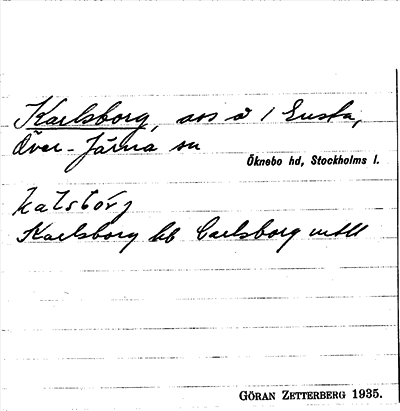 Karlsborg, avs å 1 Ensta,
Över-Järna sn
Öknebo hd, Stockholms l.
kalsborj
Karlsborg hb Carlsborg mtll
GÖRAN ZETTERBERG 1935.